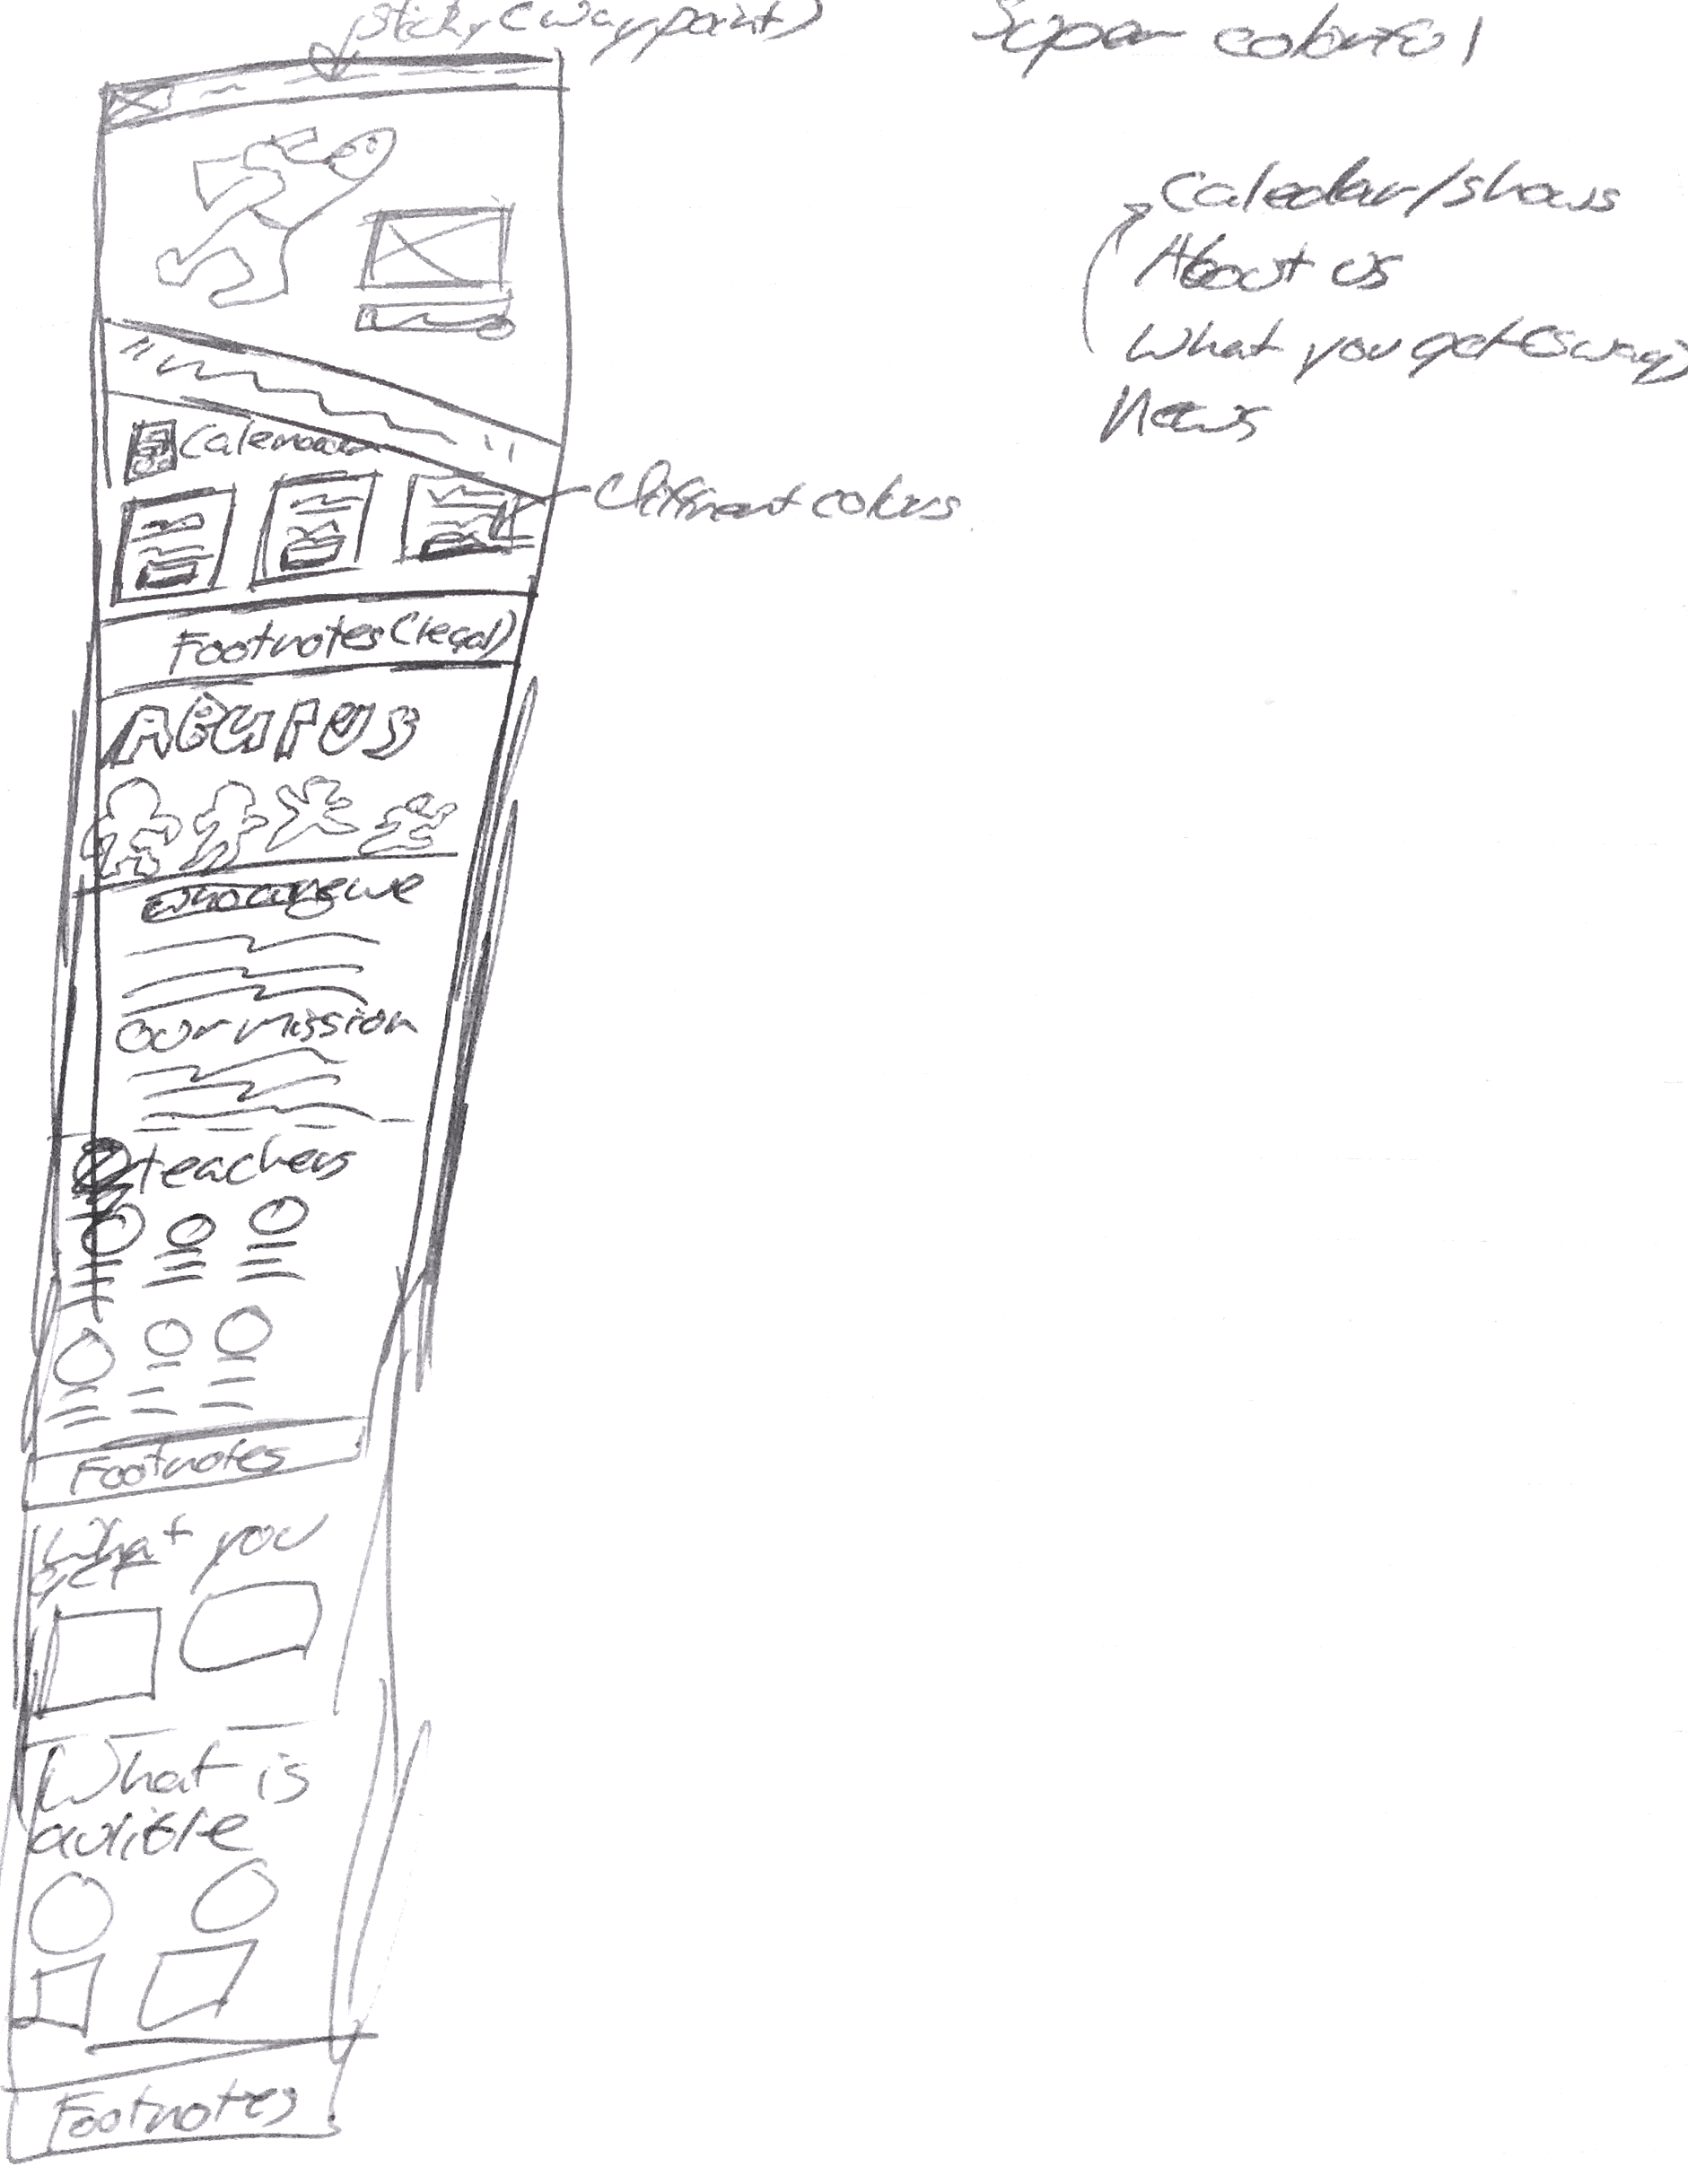 sticky (waypoint)
Super colorful
Caledar/shows
About us
What you get (swag)
News
Calendar
Different colors
Footnotes (legal)
About us
who are we
our mission
teachers
Footnotes
What you
get
What is
avlible
Footnotes